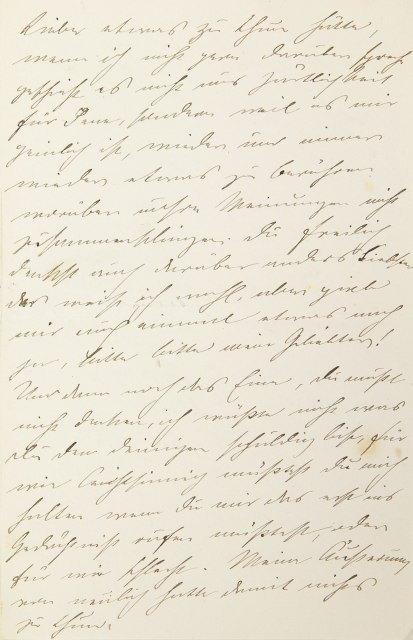 lieber etwas zu thun hätte,
wenn ich nicht gern darüber sprech
geschieht es nicht aus Zärtlichkeit
für Jene, sondern weil es mir
peinlich ist, wieder und immer
wieder etwas zu berühren
worüber unsre Meinungen nicht
zusammenklingen. Du freilich
denkst auch darüber anders Liebster
das weiß ich wohl, aber gieb
mir auch einmal etwas nach
ja, bitte bitte mein Geliebter!
Und dann noch das Eine, Du mußt
nicht denken, ich wüßte nicht was
Du den Deinigen schuldig bist, für
wie leichtsinnig müßtest Du mich
halten wenn Du mir das erst ins
Gedächtniß rufen müßtest, oder
für wie schlecht. Meine Äußerung
von neulich hatte damit nichts
zu thun.